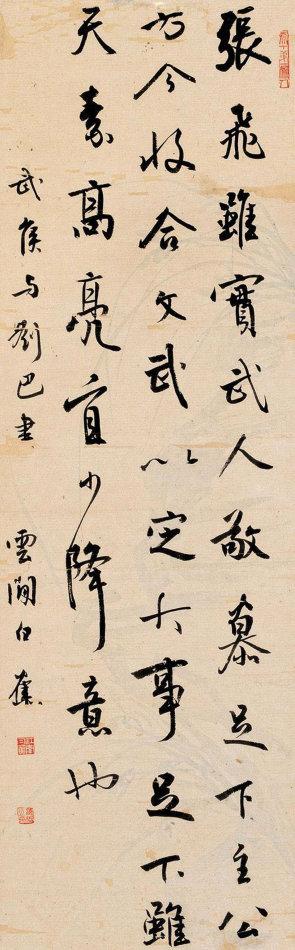 張飛雖實武人敬慕足下主公
方今收合文武以定大事足下雖
天素高亮宜少降意也
武侯与劉巴書 雲間白蕉